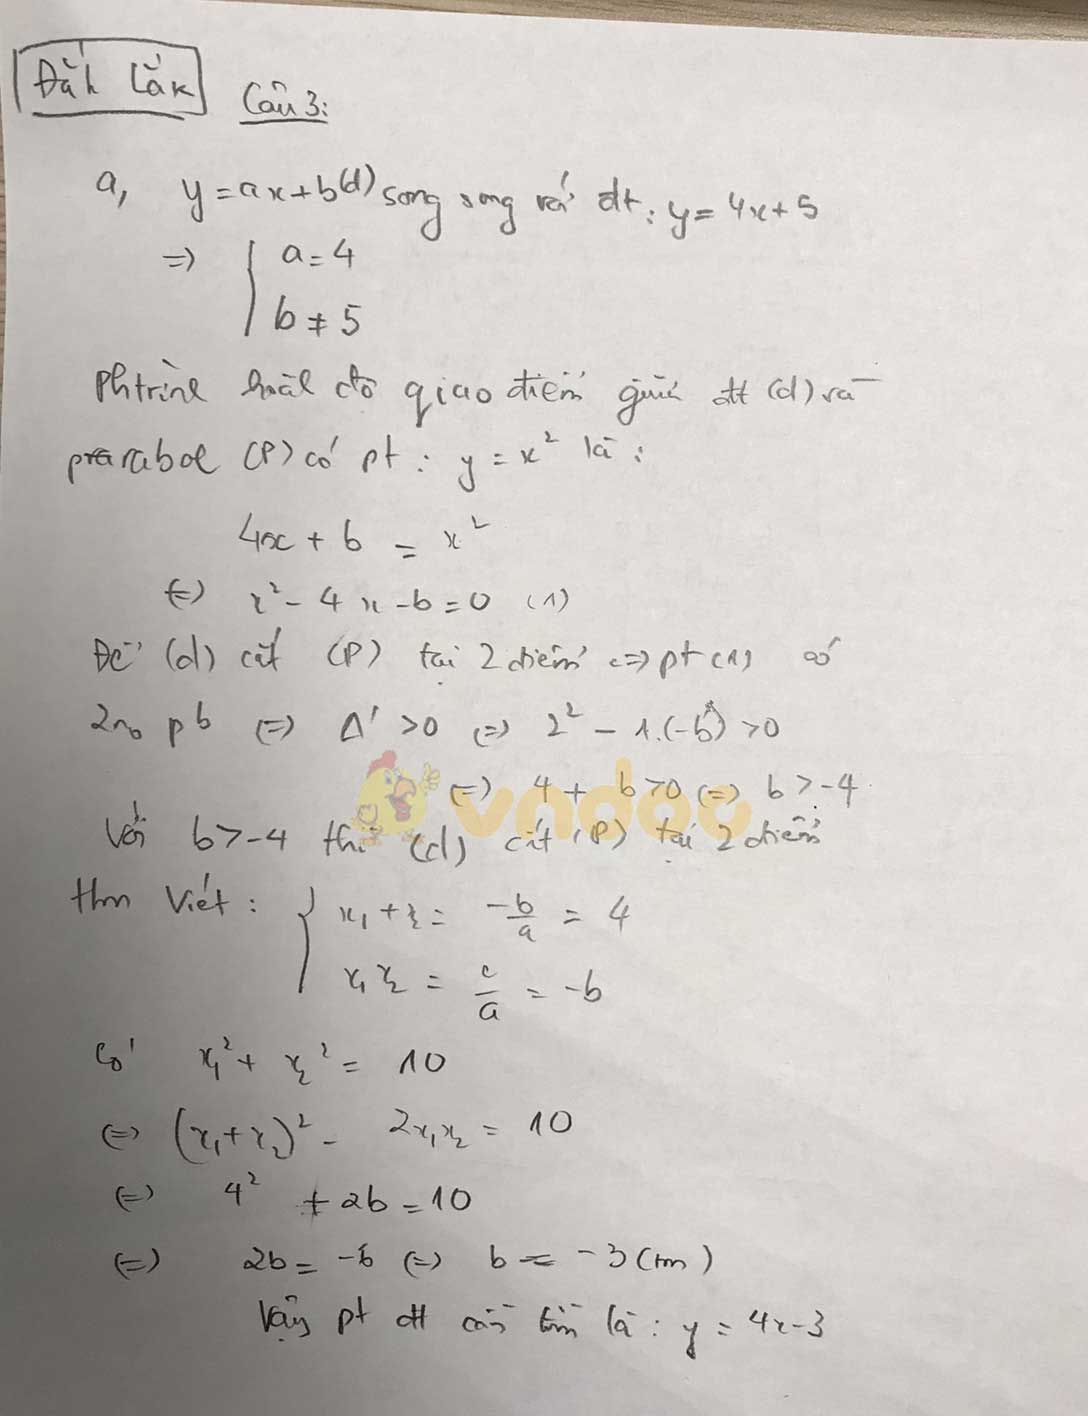 Đắk Lắk Câu 3:
a, y = ax + b (d) song song với đt: y = 4x + 5
=> { a = 4
b ≠ 5
Phtrình hoành độ giao điểm giữa đt (d) và
parabol (P) có pt: y = x² là:
4x + b = x²
<=> x² - 4x - b = 0 (1)
Để (d) cắt (P) tại 2 điểm <=> pt (1) có
2no pb <=> Δ' > 0 <=> 2² - 1.(-b) > 0
<=> 4 + b > 0 <=> b > -4
vndoc
Với b > -4 thì (d) cắt (P) tại 2 điểm
Viét: { x₁ + x₂ = -b/a = 4
x₁x₂ = c/a = -b
Có x₁² + x₂² = 10
<=> (x₁ + x₂)² - 2x₁x₂ = 10
<=> 4² + 2b = 10
<=> 2b = -6 <=> b = -3 (tm)
Vậy pt đt cần tìm là: y = 4x - 3